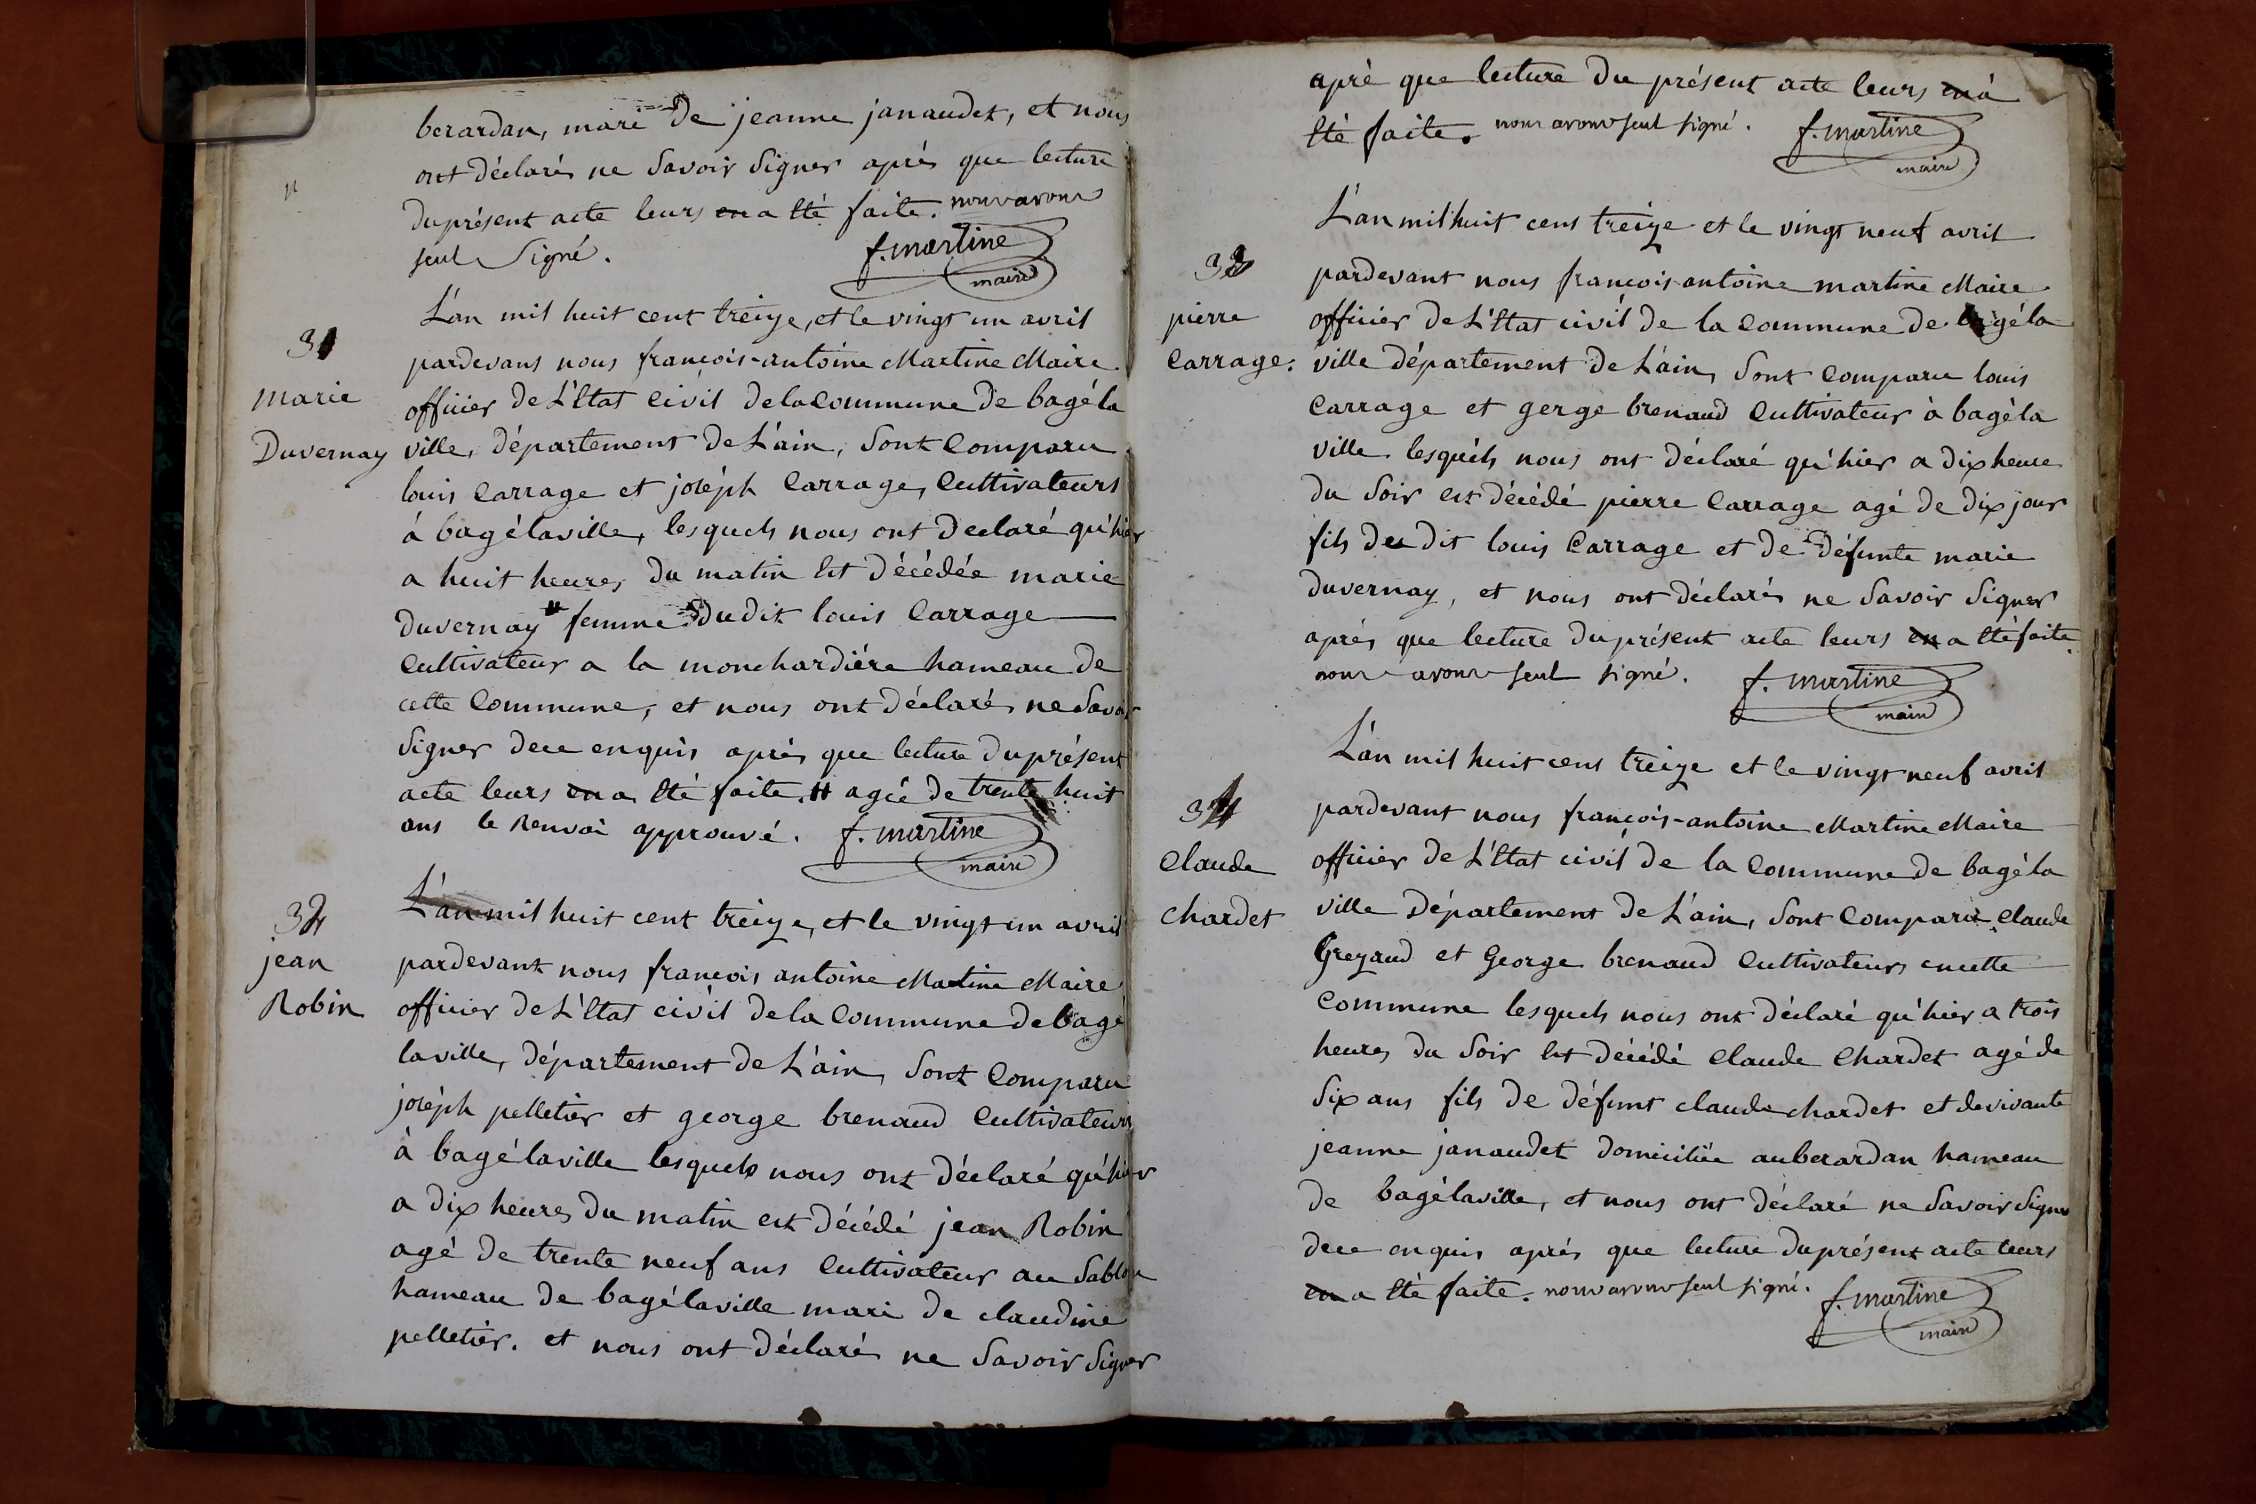 berardan, mari de jeanne janaudet, et nous
ont déclarés ne Savoir Signer après que lecture
du présent acte leurs en a Eté faite. nous avons
seul Signé.
f. martine
maire
L'an mil huit cent treize, et le vingt un avril
31
pardevans nous françois-antoine Martine Maire
marie
officier de L'Etat civil de la commune de bagéla
Duvernay
ville, département de L'ain, Sont Comparu
louis Carrage et joséph Carrage, Cultivateurs
á bagélaville, lesquels nous ont declaré qu'hier
a huit heures du matin Est Décédée marie
duvernay # femme dudit louis Carrage
Cultivateur a la monchardiére hameau de
cette Commune, et nous ont déclarés ne Savoir
Signer de ce enquis après que lecture du présent
acte leurs en a Eté faite. # agée de trente huit
ans le Renvoi approuvé.
f. martine
maire
L'an mil huit cent treize, et le vingt un avril
32
jean
pardevant nous françois antoine Martine Maire
Robin
officier de L'Etat civil de la Commune de bagé
laville, département de L'ain, Sont Comparu
joséph pelletier et george brenaud Cultivateurs
à bagélaville lesquels nous ont déclaré qu'hier
a dix heures du matin est décédé jean Robin
agé de trente neuf ans Cultivateur au Sablon
hameau de bagélaville mari de claudine
pelletier. et nous ont déclarés ne Savoir Signer
aprè que lecture du présent acte leurs en à
Eté faite. nous avons seul signé.
f. martine
maire
L'an mil huit cent treize et le vingt neuf avril
33
pardevant nous françois-antoine martine Maire
pierre
officier de L'Etat civil de la Commune de bagéla
Carrage.
ville département de L'ain, Sont Comparu louis
Carrage et gerge brenaud Cultivateur à bagéla
ville lesquels nous ont déclaré qu'hier a dix heure
du Soir est décédé pierre Carrage agé de dix jour
fils du dit louis Carrage et de défunte marie
duvernay, et nous ont déclarés ne Savoir Signer
aprés que lecture du présent acte leurs en a Eté faite.
nous avons seul signé.
f. martine
maire
L'an mil huit cent treize et le vingt neuf avril
34
pardevant nous françois-antoine Martine Maire
Claude
officier de L'Etat civil de la Commune de bagéla
chardet
ville département de L'ain, Sont Comparu Claude
Greyaud et George brenaud Cultivateurs en cette
Commune lesquels nous ont déclaré qu'hier a trois
heures du Soir Est décédé Claude Chardet agé de
Six ans fils de défunt claude chardet et de vivante
jeanne janaudet domiciliée au berardan hameau
de bagélaville, et nous ont déclaré ne Savoir Signer
de ce enquis aprés que lecture du présent acte leurs
en a Eté faite. nous avons seul signé.
f. martine
maire